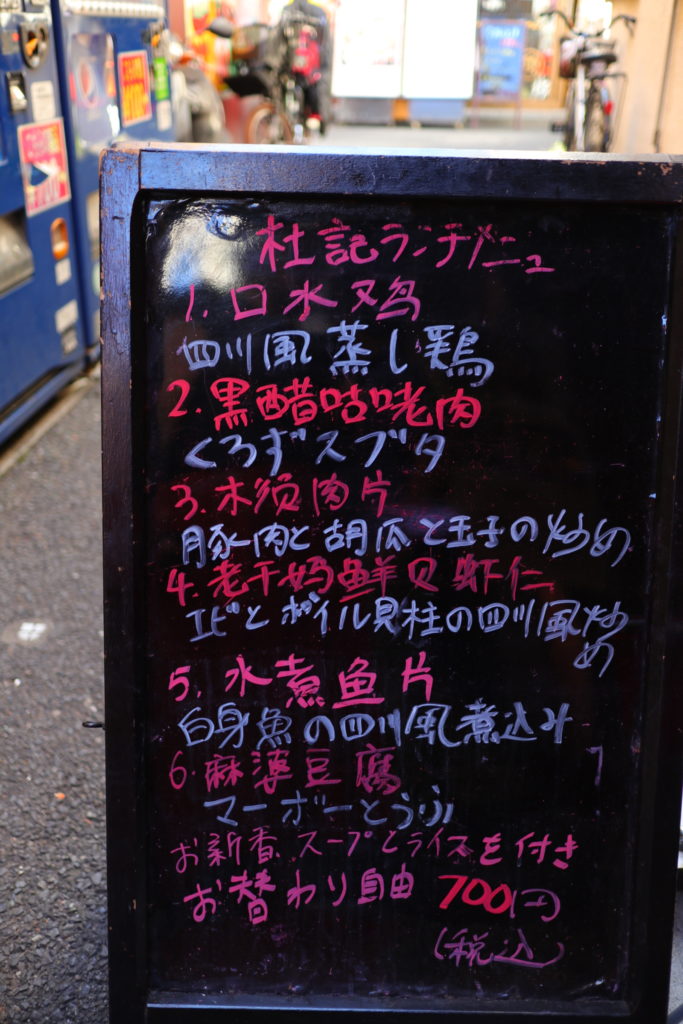 杜記ランチメニュ
1.口水鸡
四川風蒸し鶏
2.黒醋咕咾肉
くろずスブタ
3.木须肉片
豚肉と胡瓜と玉子の炒め
4.老干妈鲜贝虾仁
エビとボイル貝柱の四川風炒
め
5.水煮鱼片
白身魚の四川風煮込み
6.麻婆豆腐
マーボーとうふ
お新香.スープとライスを付き
お替わり自由 700円
(税込)